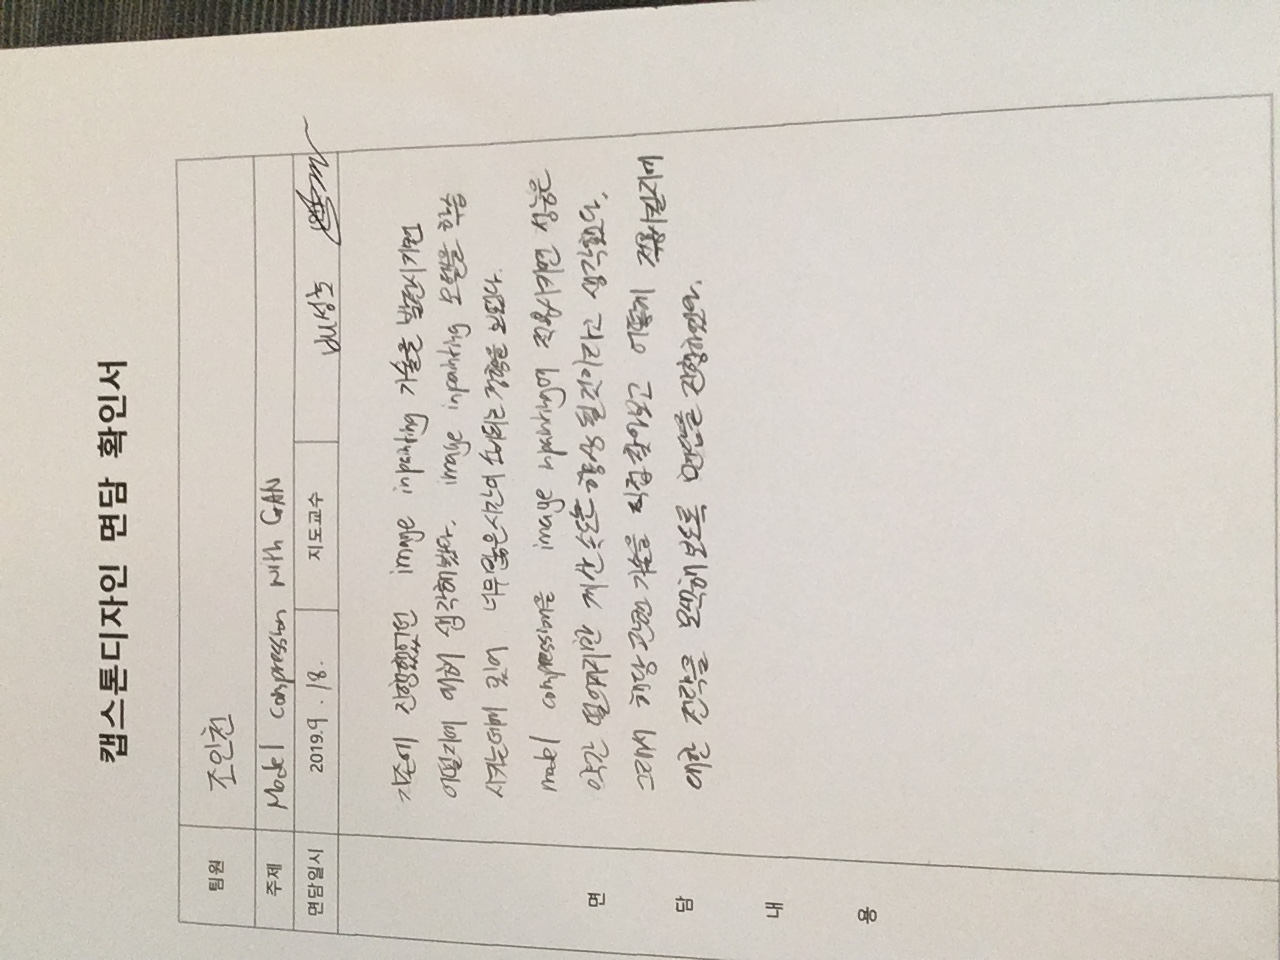 캡스톤디자인 면담 확인서
팀원 조인천
주제 Model compression with GAN
면담일시 2019.9.18. 지도교수 배성호
면담내용
기존에 진행했었던 image inpainting 기술을 발전시키면
어떨지에 대해 생각해봤다. image inpainting 모델을 학습
시키는데에 있어 너무 많은 시간이 소비되는 경향을 보인다.
model compression을 image inpainting에 적용시키면 성능은
약간 떨어지지만 계산 속도는 향상 될것이라고 생각했다.
그래서 해당 관련 기술을 직접 찾아보고 어떻게 적용시킬지에
대한 전략을 모색해 보도록 면담을 진행하였다.